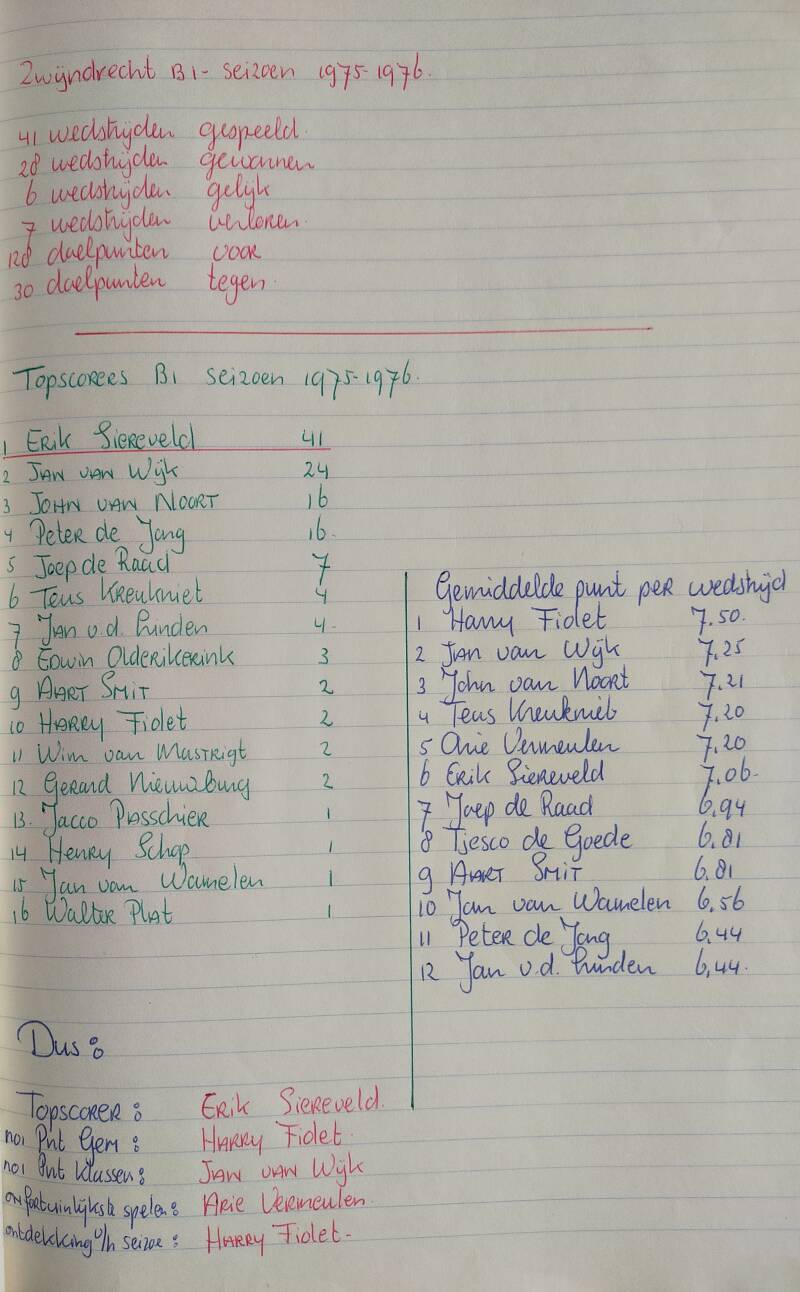 Zwijndrecht B1 - seizoen 1975-1976.
41 wedstrijden gespeeld.
28 wedstrijden gewonnen
6 wedstrijden gelijk
7 wedstrijden verloren.
128 doelpunten voor
30 doelpunten tegen.
Topscorers B1 seizoen 1975-1976.
1 Erik Siereveld 41
2 Jan van Wijk 24
3 John van Noort 16
4 Peter de Jong 16.
5 Joep de Raad 7
6 Teus Kreukniet 4
7 Jan v.d. Linden 4.
8 Edwin Olderikerink 3
9 Aart Smit 2
10 Harry Fiolet 2
11 Wim van Mastrigt 2
12 Gerard Nieuwburg 2
13. Jacco Passchier 1
14 Henry Schop 1
15 Jan van Wamelen 1
16 Walter Plat 1
Gemiddelde punt per wedstrijd
1 Harry Fiolet 7.50.
2 Jan van Wijk 7.25
3 John van Noort 7.21
4 Teus Kreukniet 7.20
5 Arie Vermeulen 7.20
6 Erik Siereveld 7.06.
7 Joep de Raad 6.94
8 Tjesco de Goede 6.81
9 Aart Smit 6.81
10 Jan van Wamelen 6.56
11 Peter de Jong 6.44
12 Jan v.d. Linden 6.44.
Dus:
Topscorer: Erik Siereveld.
no1 Pnt Gem: Harry Fiolet
no1 Pnt Klassen: Jan van Wijk
onfortuinlijkste speler: Arie Vermeulen.
ontdekking v/h seizoe: Harry Fiolet-